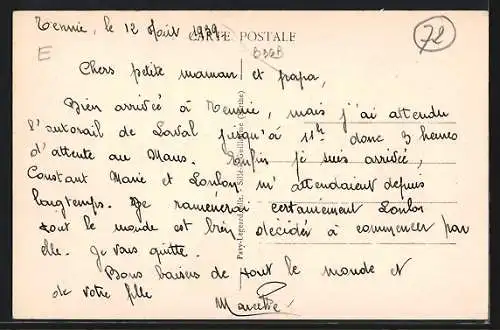 Tennie, le 12 Août 1939
CARTE POSTALE
72
E
Chers ptite maman et papa,
Bien arrivée à Tennie, mais j'ai attendu
l'autorail de Laval jusqu'à 11h donc 3 heures
d'attente au Mans. Enfin je suis arrivée,
Constant Marie et Loulou m'attendaient depuis
longtemps. Je ramènerai certainement Loulou
tout le monde est bien décidér à commencer par
elle. Je vous quitte.
Bons baisers de tout le monde et
de votre fille
Marcelle